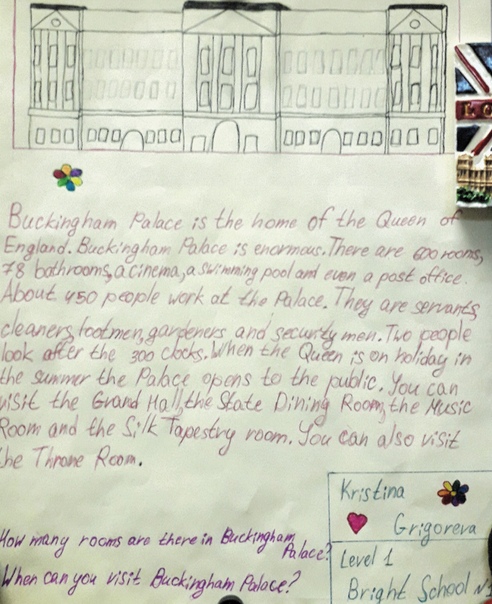 Buckingham Palace is the home of the Queen of
England. Buckingham Palace is enormous. There are 600 rooms,
78 bathrooms, a cinema, a swimming pool and even a post office.
About 450 people work at the Palace. They are servants,
cleaners, footmen, gardeners and security men. Two people
look after the 300 clocks. When the Queen is on holiday in
the summer the Palace opens to the public. You can
visit the Grand Hall, the State Dining Room, the Music
Room and the Silk Tapestry room. You can also visit
the Throne Room.
How many rooms are there in Buckingham
Palace?
When can you visit Buckingham Palace?
Kristina
Grigoreva
Level 1
Bright School